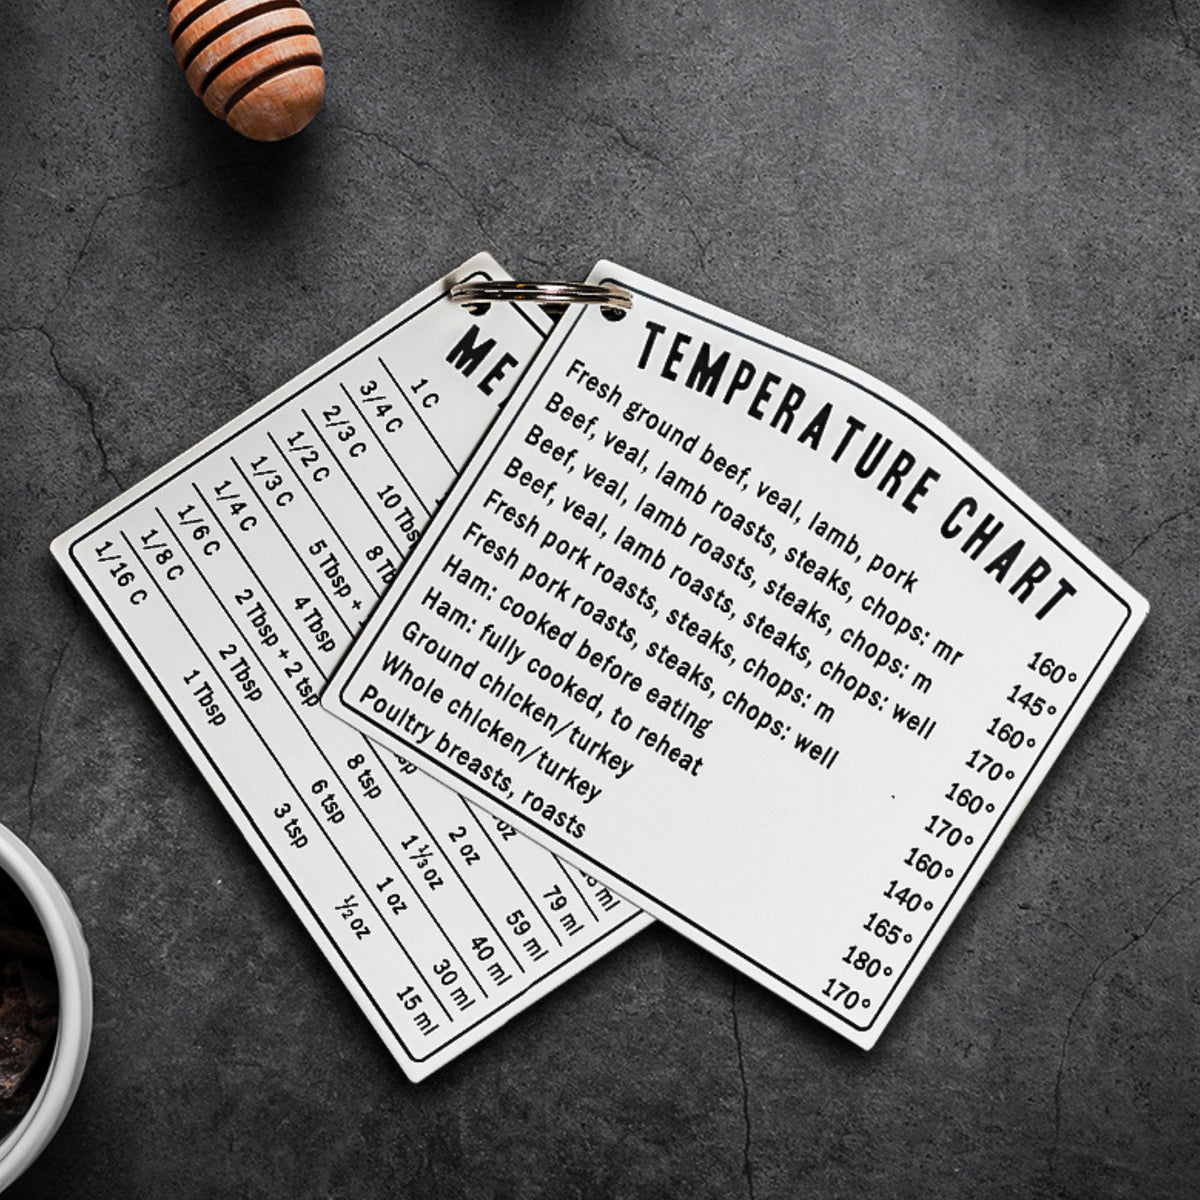 TEMPERATURE CHART
Fresh ground beef, veal, lamb, pork 160°
Beef, veal, lamb roasts, steaks, chops: mr 145°
Beef, veal, lamb roasts, steaks, chops: m 160°
Beef, veal, lamb roasts, steaks, chops: well 170°
Fresh pork roasts, steaks, chops: m 160°
Fresh pork roasts, steaks, chops: well 170°
Ham: cooked before eating 160°
Ham: fully cooked, to reheat 140°
Ground chicken/turkey 165°
Whole chicken/turkey 180°
Poultry breasts, roasts 170°
1 C
3/4 C
2/3 C 10 Tbsp
1/2 C 8
1/3 C 5 Tbsp +
1/4 C 4 Tbsp 79 ml
1/6 C 2 Tbsp + 2 tsp 8 tsp 2 oz 59 ml
1/8 C 2 Tbsp 6 tsp 1 ⅓ oz 40 ml
1/16 C 1 Tbsp 3 tsp 1 oz 30 ml
½ oz 15 ml